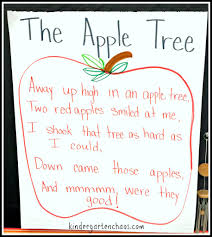 The Apple Tree
Away up high in an apple tree,
Two red apples smiled at me,
I shook that tree as hard as
I could.
Down came those apples,
And mmmmm, were they
good!
kindergartenchaos.com